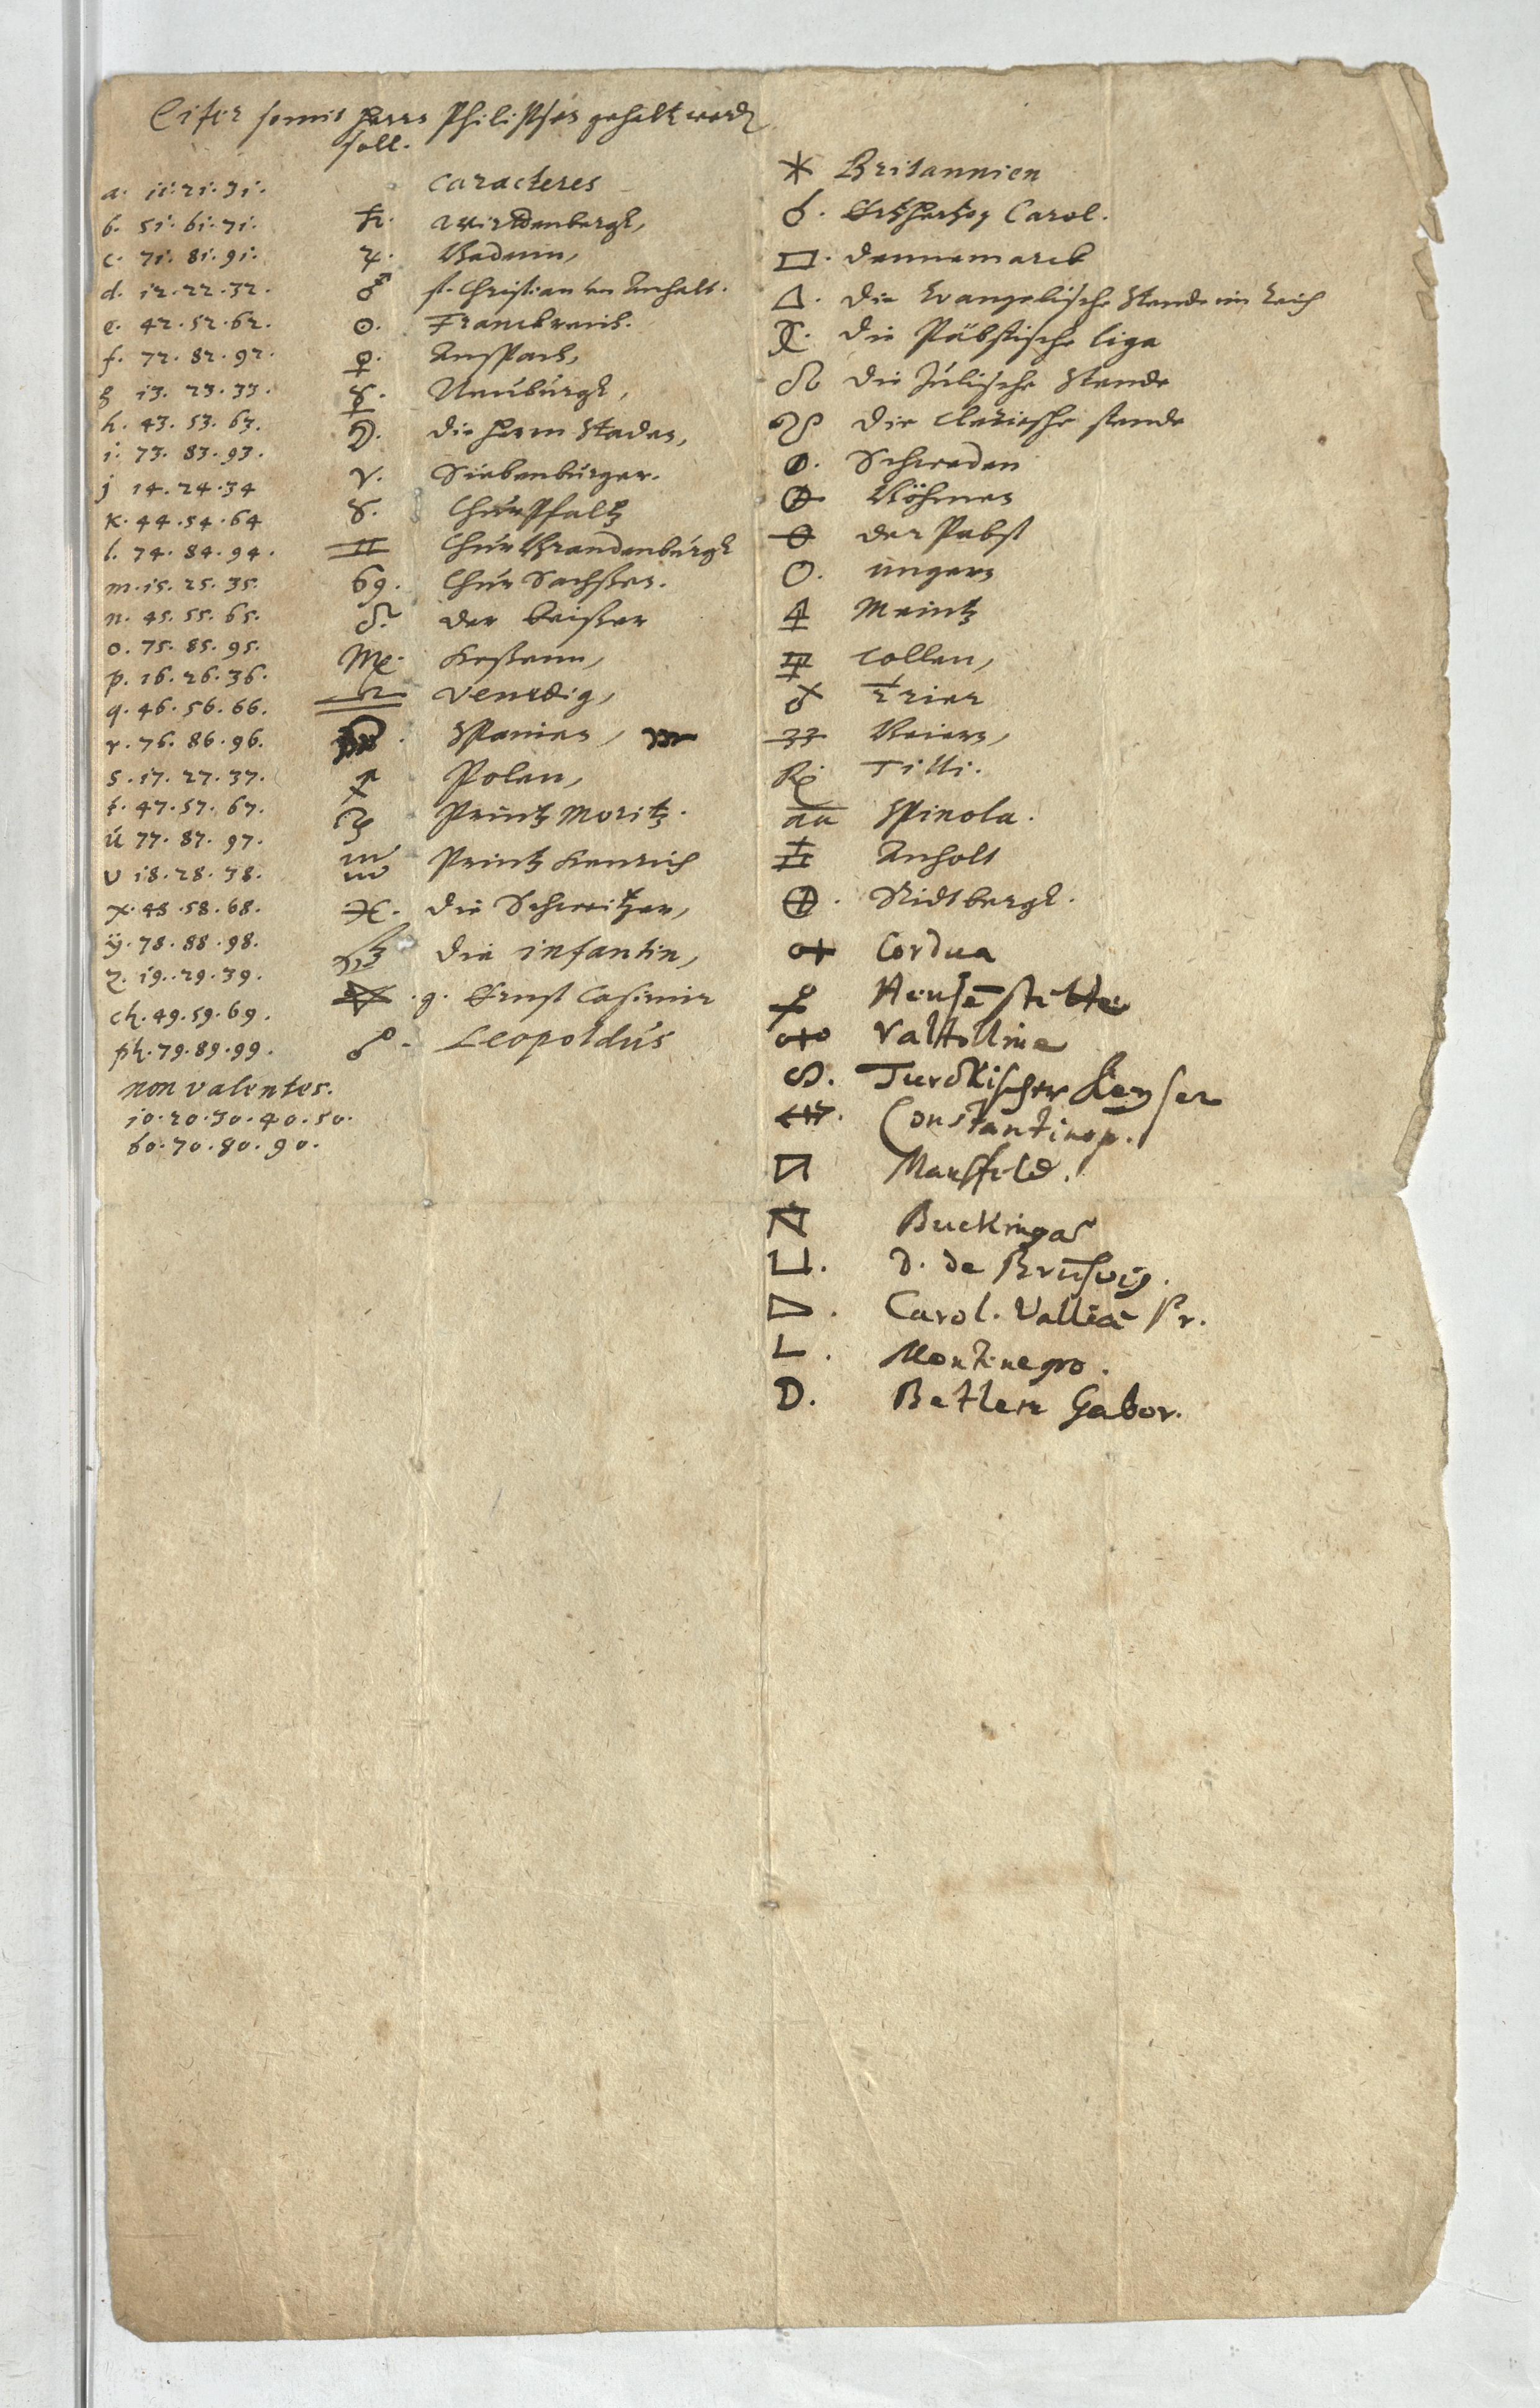 Cifer somit herr Philipsen gehalt werd
soll.
a. 11. 21. 31.
b. 51. 61. 71.
c. 71. 81. 91.
d. 12. 22. 32.
e. 42. 52. 62.
f. 72. 82. 92.
g 13. 23. 33.
h. 43. 53. 63.
i. 73. 83. 93.
j 14. 24. 34
k. 44. 54. 64
l. 74. 84. 94.
m. 15. 25. 35.
n. 45. 55. 65.
o. 75. 85. 95.
p. 16. 26. 36.
q. 46. 56. 66.
r. 76. 86. 96.
s. 17. 27. 37.
t. 47. 57. 67.
ú 77. 87. 97.
v 18. 28. 38.
x. 48. 58. 68.
ÿ. 78. 88. 98.
z. 19. 29. 39.
ch. 49. 59. 69.
ph. 79. 89. 99.
non valentes.
10. 20. 30. 40. 50.
60. 70. 80. 90.
caracteres
♄. Wirttenbergk,
♃. Badenn,
♂ f. Christian von Anhalt.
☉. Franckreich.
♀. Anspach,
☿. Neuburgk,
☽. die herrn Staden,
♈. Siebenbürger.
♉. ChurPfaltz
♊ Chur Brandenburgk
69. Chur Sachssen.
♌. der keisser
♍. Hessenn,
♎ Venedig,
Spanien,
♐ Polen,
♑ Printz Moritz.
♒ Printz Henrich
♓. die Schweitzer,
die infantin,
g. Ernst Casimir
☍. Leopoldus
* Britannien
☌. Ertzhertzog Carol.
□. Dennemarck
△. die Evangelische Stende im Reich
die Päbstische liga
☊ die Julische Stende
☋ die Clevische stende
Schweden
Böhmen
der Pabst
O. ungern
Meintz
Collen,
Trier
Beiern,
Tilli.
aa Spinola.
Anholt
Ridtbergk.
Cordua
Hense stette
Valtolline
Turckischer Keyser
Constantinop.
Mansfeld.
Buckingam
D. de Brunsvig.
Carol. Valliæ Pr.
L. Montenegro.
D. Betlem Gabor.